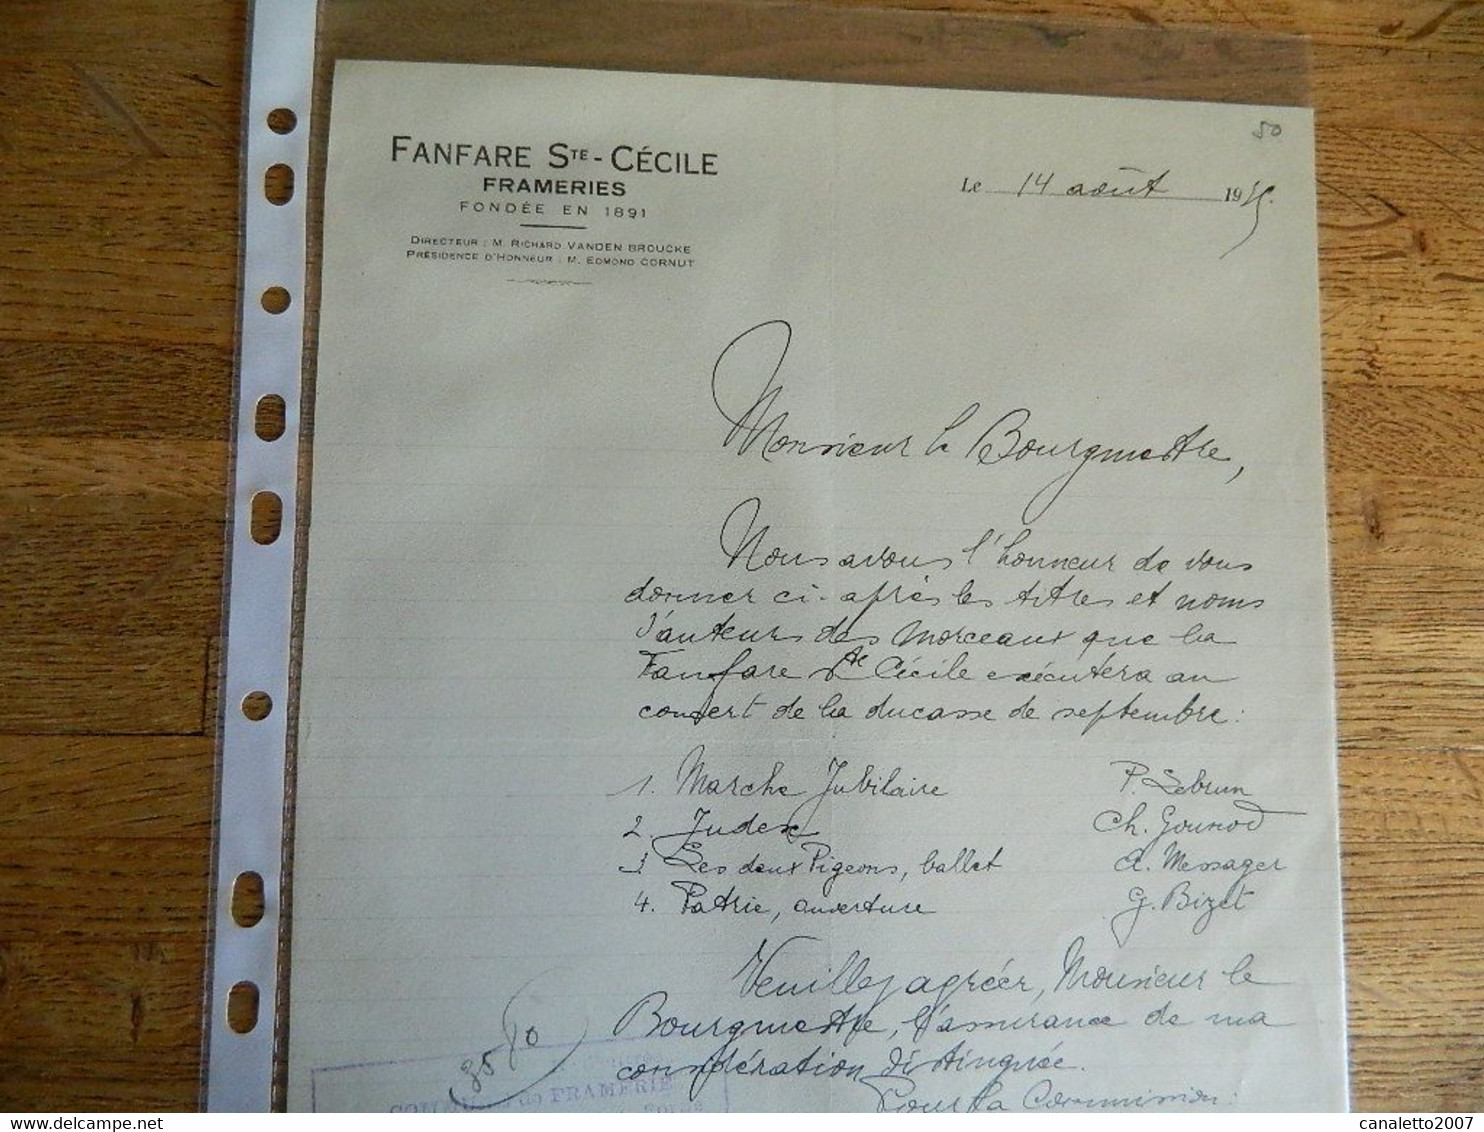 50
FANFARE STE-CÉCILE
FRAMERIES
FONDÉE EN 1891
DIRECTEUR : M. RICHARD VANDEN BROUCKE
PRÉSIDENCE D'HONNEUR : M. EDMOND CORNUT
Le 14 août 19
Monsieur le Bourgmestre,
Nous avons l'honneur de vous
donner ci-après les titres et noms
d'auteurs des morceaux que la
Fanfare Ste Cécile exécutera au
concert de la ducasse de septembre :
1. Marche Jubilaire P. Lebrun
2. Judex Ch. Gounod
3 Les deux Pigeons, ballet A. Messager
4. Patrie, ouverture G. Bizet
Veuillez agréer, Monsieur le
Bourgmestre, l'assurance de ma
considération distinguée.
Pour la Commission :
COMMUNE DE FRAMERIE
delcampe.net
canaletto2007